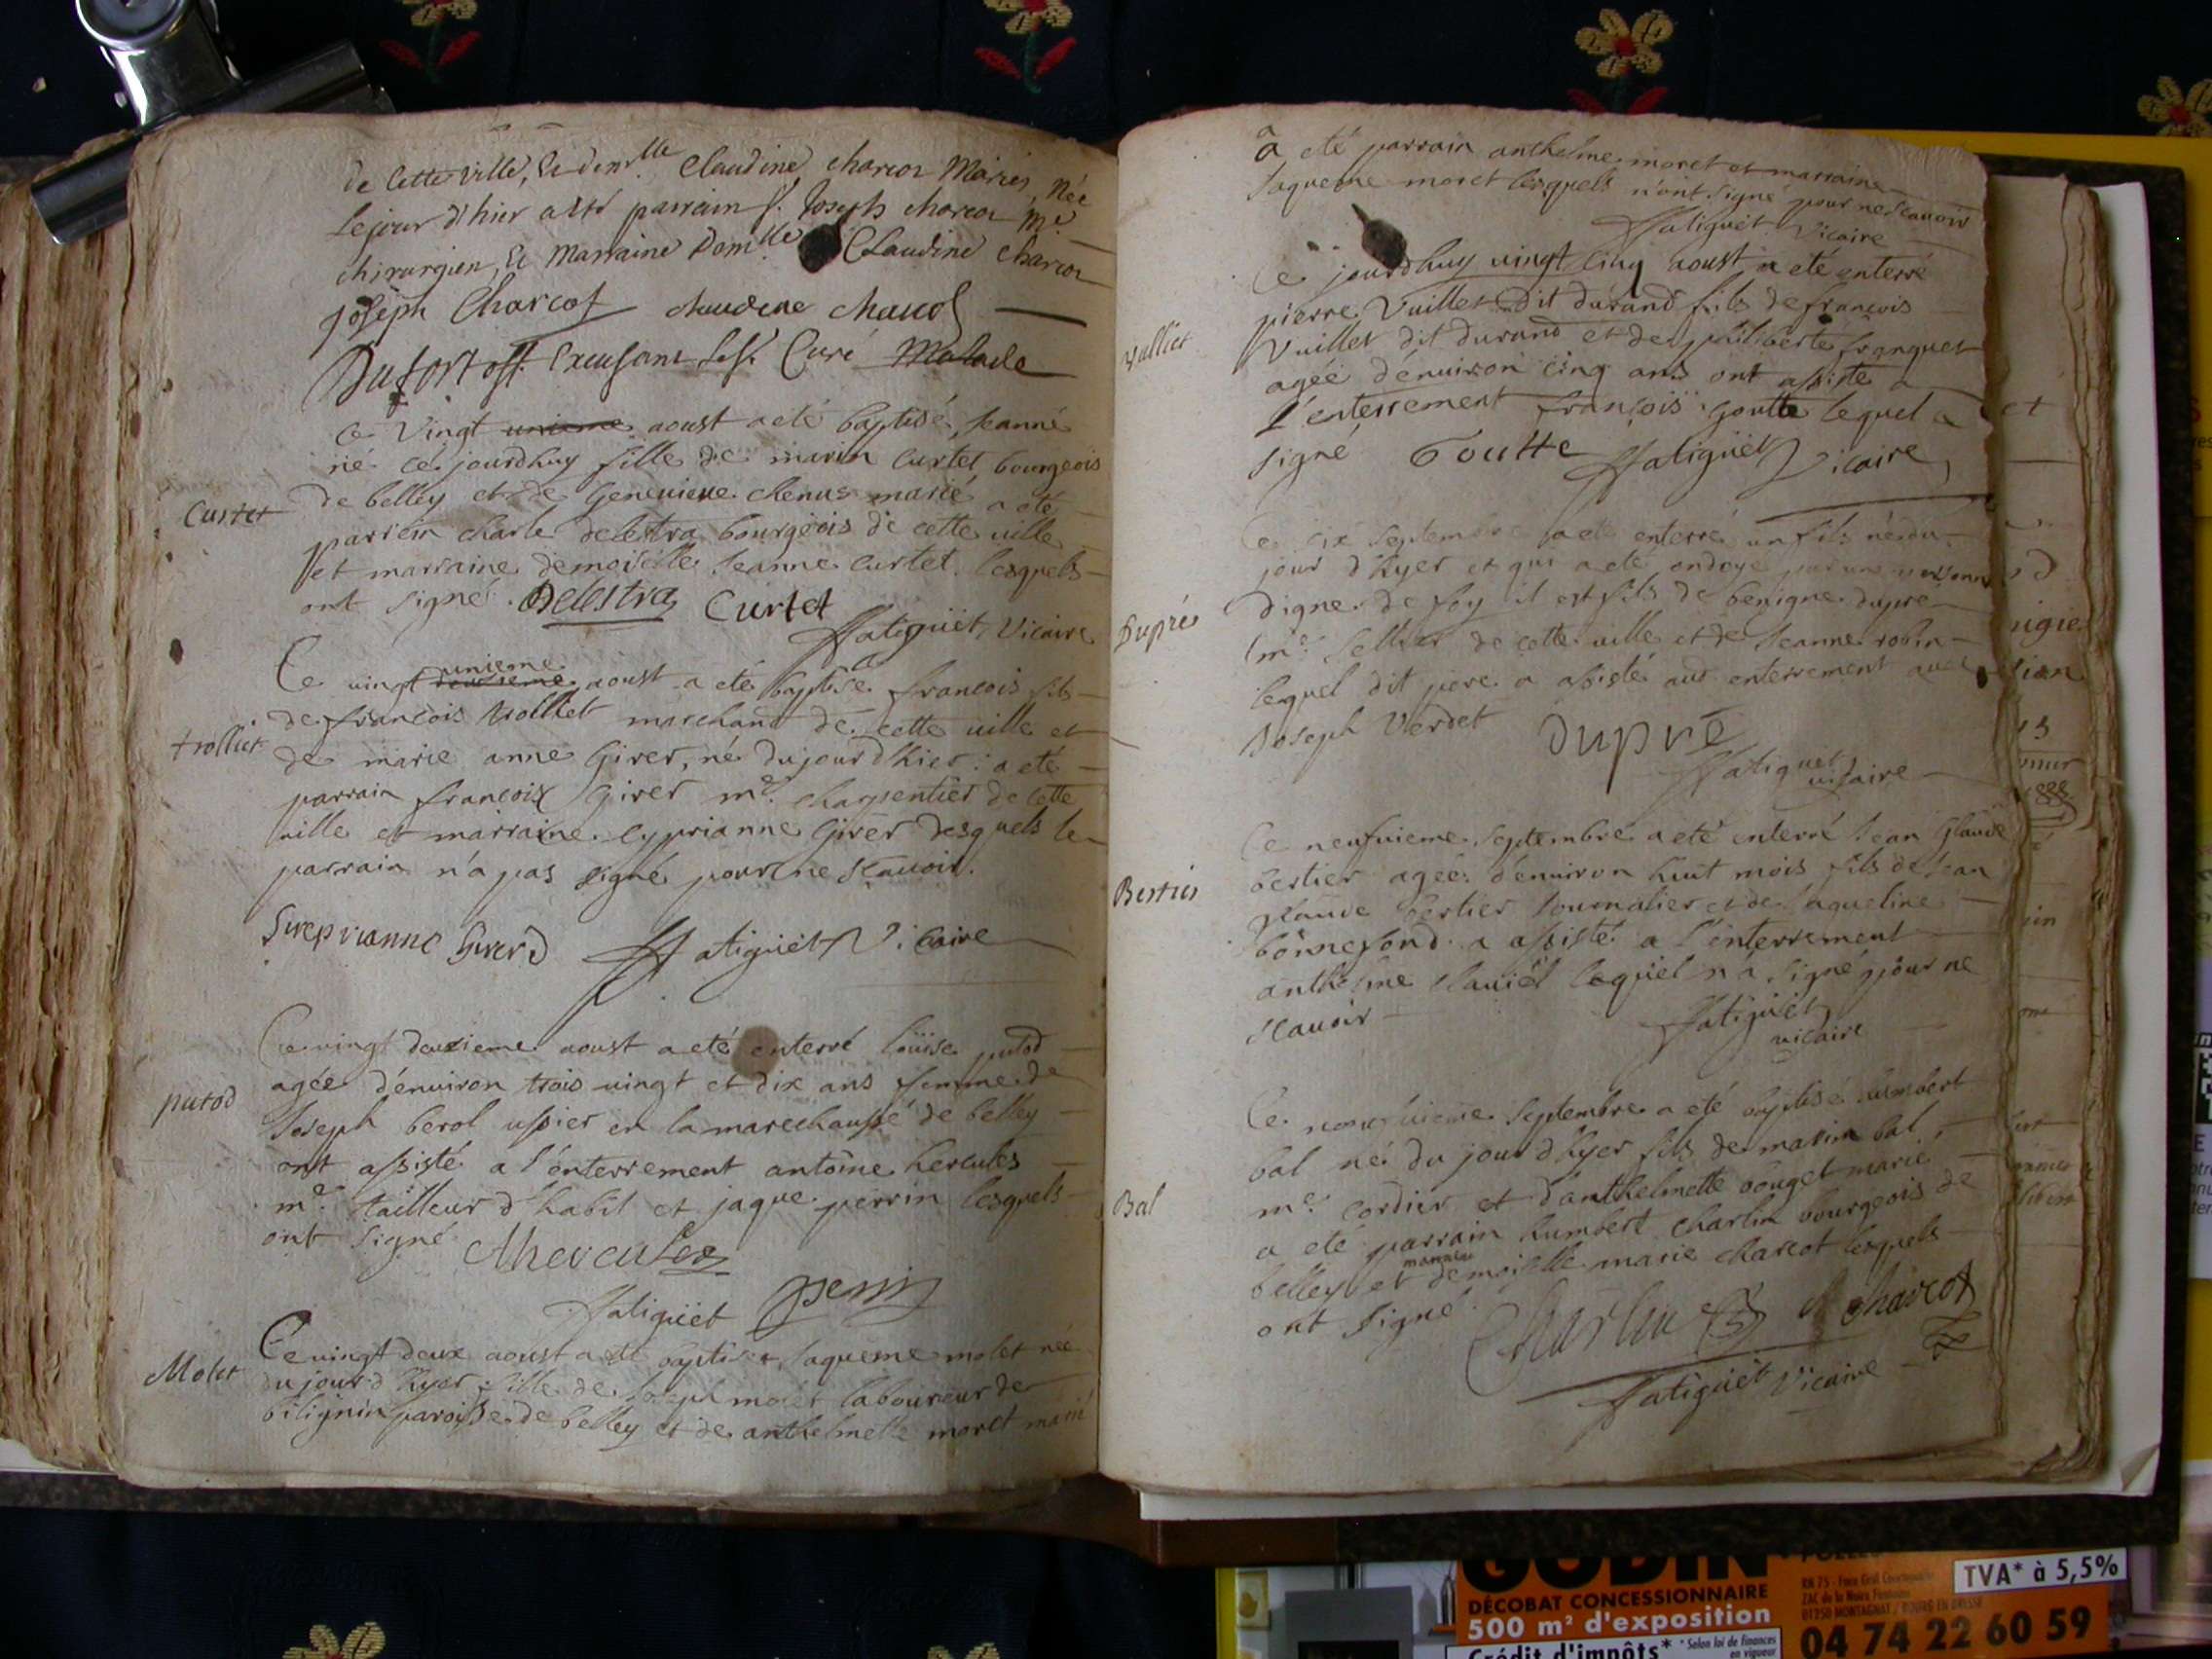 de Cette Ville, & dem.lle Claudine charcot Mariés, Née
le jour d'hier a été parrain s.r Joseph charcot m.e
chirurgien, & Marraine Dem.lle Claudine Charcot
joseph Charcot claudine charcot
Dufort off. Excusant le s.r Curé Malade
Curtet
Ce Vingt unieme aoust a eté baptisé, Jeanne
né ce jourdhuy fille de marin Curtet bourgeois
de belley et de Genevieve chenus marié a eté
parrein charle delestra bourgeois de cette ville
et marraine demoiselle Jeanne Curtet lesquels
ont signé. Delestra Curtet
fatiguët Vicaire
trollier
unieme
Ce vingt deuxieme aoust a eté baptisé francois fils
de francois trolliet marchand de cette ville et
de marie anne Girer, né dujourdhier : a eté
parrain francois Girer m.e charpentier de cette
ville et marraine cyprianne Girer desquels le
parrain n'a pas signé pour ne scauoir.
Sireprianne Girerd fatiguët Vicaire
putod
Ce vingt deuxieme aoust a eté enterré loüise putod
agée d'enuiron trois vingt et dix ans femme de
Joseph berol ussier en la marechaussé de belley
ont assisté a l'enterrement antoine hercules
m.e tailleur d'habit et jaque perrin lesquels
ont signé Ahercules
fatiguët perrin
Molet
Ce vingt deux aoust a eté baptisée Jaqueme molet née
du jour d'hyer fille de Joseph molet laboureur de
bilignin paroisse de belley et de anthelmette moret marié
a eté parrain anthelme moret et marraine
Jaqueme moret lesquels n'ont signé pour ne scauoir
fatiguët Vicaire
vulliet
Ce jourdhuy vingt cinq aoust a eté enterré
pierre Vuillet dit durand fils de francois
Vuillet dit durand et de philiberte franquet
agée d'enuiron cinq ans ont assisté a
l'enterrement françois goutte lequel a
signé Goutte fatiguët Vicaire
Dupré
Ce six Septembre a eté enterré un fils né du
jour d'hyer et qui a eté ondoyé par une personne
digne de foy il est fils de benigne dupré
m.e sellier de cette ville et de Jeanne robin
lequel dit pere a assisté aud enterrement auec
Joseph Verdet dupré
fatiguët
vicaire
Bertier
Ce neufuieme Septembre a eté enterré Jean Glaude
bertier agée d'enuiron huit mois fils de Jean
glaude bertier Journalier et de Jaqueline
bonnefond a assisté a l'enterrement
anthelme claviel lequel n'a signé pour ne
scauoir
fatiguët
vicaire
Bal
Ce neufuieme Septembre a eté baptisé humbert
bal né du jour d'hyer fils de marin bal
m.e cordier et d'anthelmette bouget marié
a eté parrain humbert charlin bourgeois de
marraine
belley et demoiselle marie charcot lesquels
ont signé.
Charlin M charcot
fatiguët Vicaire
GODIN
DÉCOBAT CONCESSIONNAIRE
500 m² d'exposition
Crédit d'impôts*
* Selon loi de finances
en vigueur
TVA* à 5,5%
04 74 22 60 59